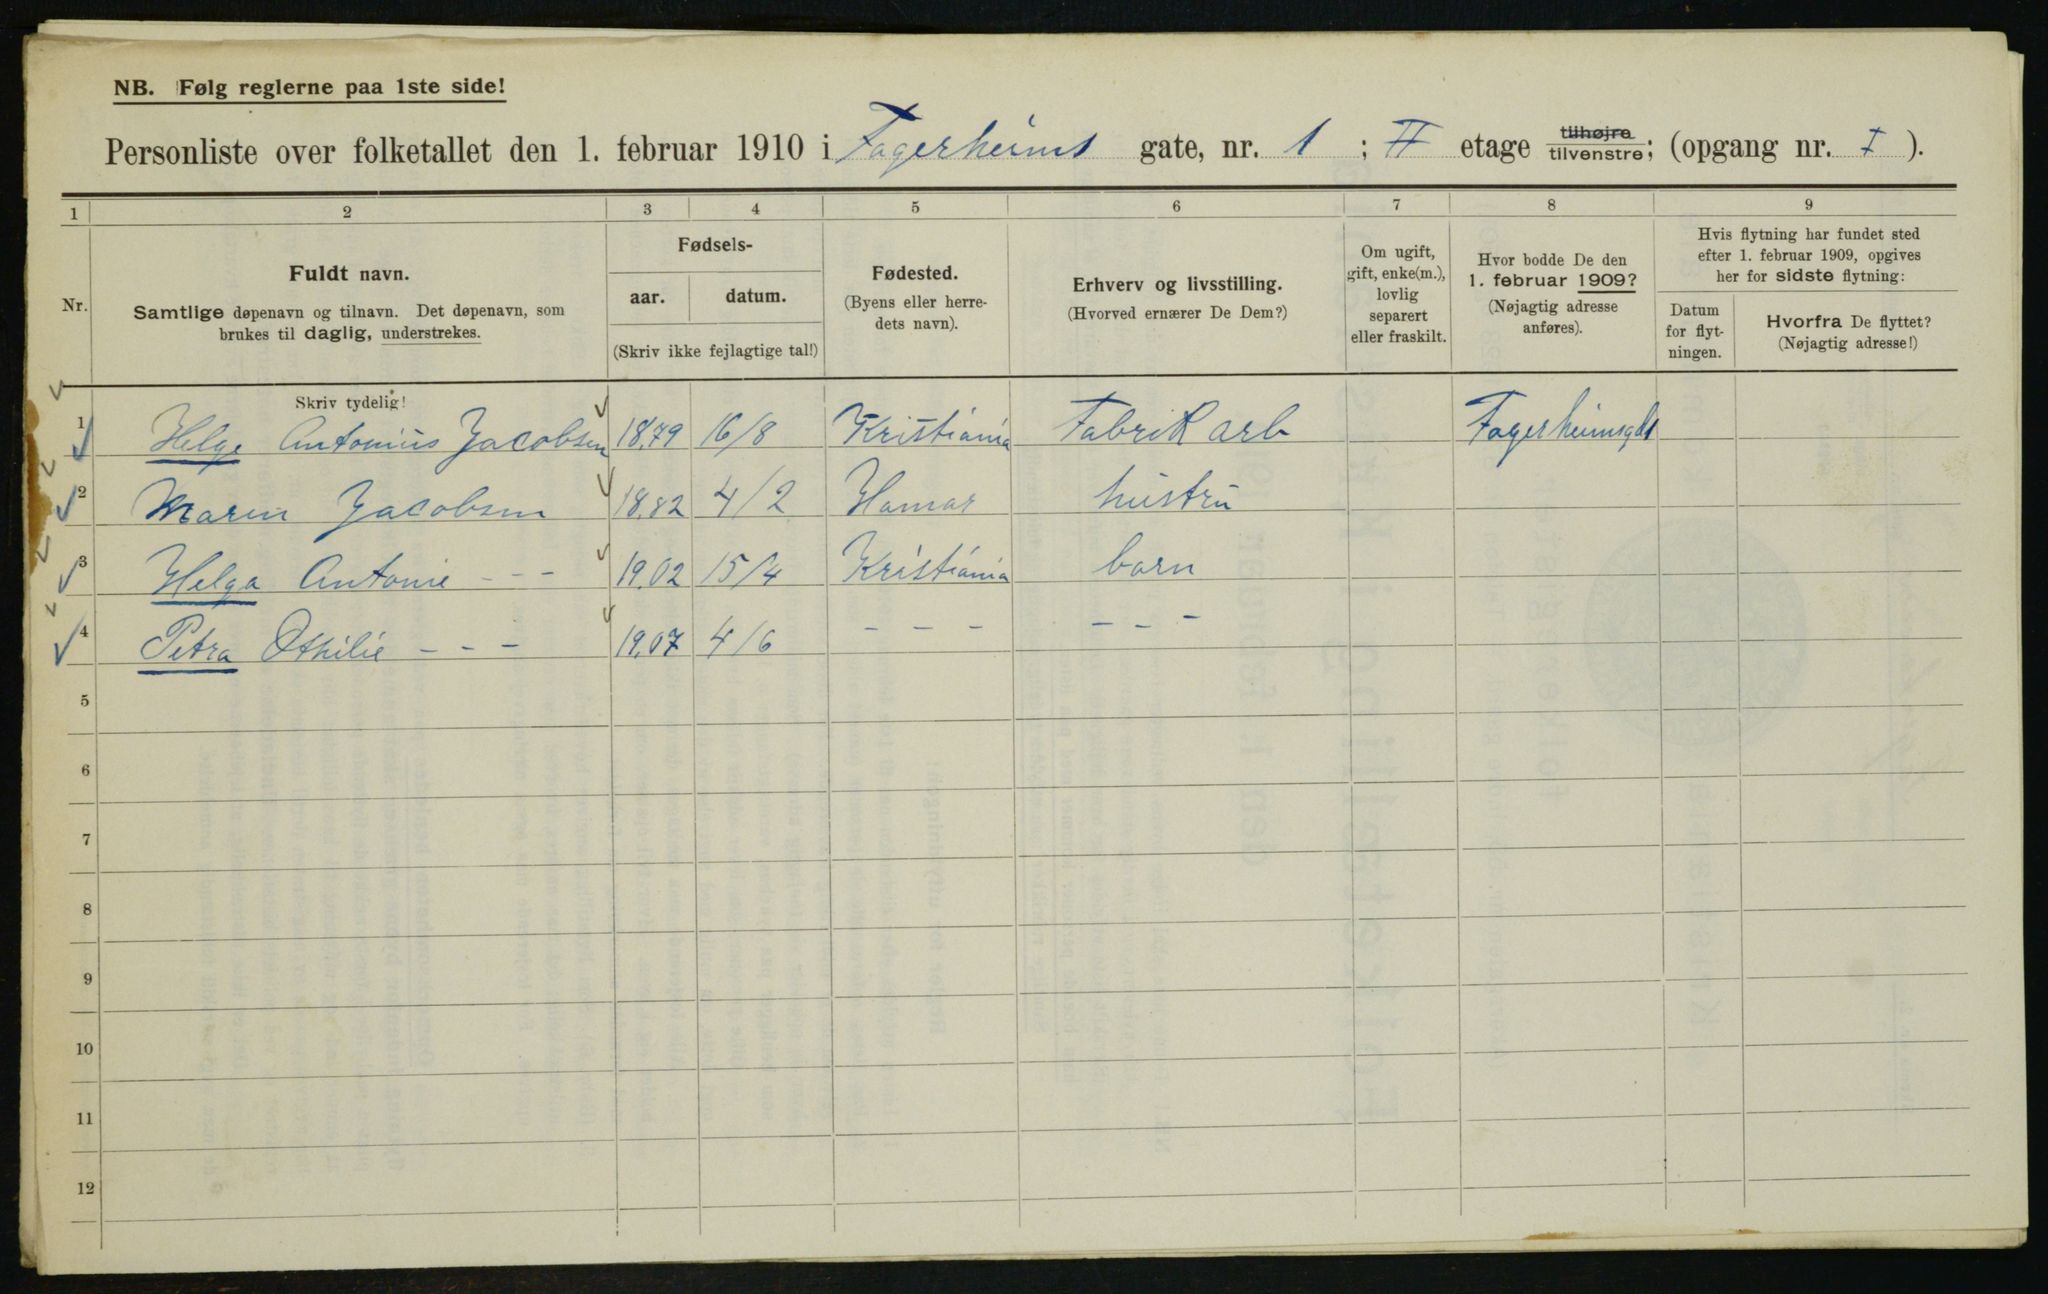 NB. Følg reglerne paa 1ste side!
Personliste over folketallet den 1. februar 1910 i Fagerheims gate, nr. 1 ; II etage tilhøjre tilvenstre; (opgang nr. I ).
1 2 3 4 5 6 7 8 9
Nr.
Fuldt navn.
Samtlige døpenavn og tilnavn. Det døpenavn, som
brukes til daglig, understrekes.
Fødsels-
aar. datum.
(Skriv ikke fejlagtige tal!)
Fødested.
(Byens eller herre-
dets navn).
Erhverv og livsstilling.
(Hvorved ernærer De Dem?)
Om ugift,
gift, enke(m.),
lovlig
separert
eller fraskilt.
Hvor bodde De den
1. februar 1909?
(Nøjagtig adresse
anføres).
Hvis flytning har fundet sted
efter 1. februar 1909, opgives
her for sidste flytning:
Datum
for flyt-
ningen.
Hvorfra De flyttet?
(Nøjagtig adresse!)
Skriv tydelig!
1 Helge Antonius Jacobsen 18,79 16/8 Kristiania Fabrik arb Fagerheimsgd1
2 Maren Jacobsen 18,82 4/2 Hamar hustru
3 Helga Antonie - - - 19,02 15/4 Kristiania barn
4 Petra Othilie - - - 19,07 4/6 - - - - - -
5
6
7
8
9
10
11
12